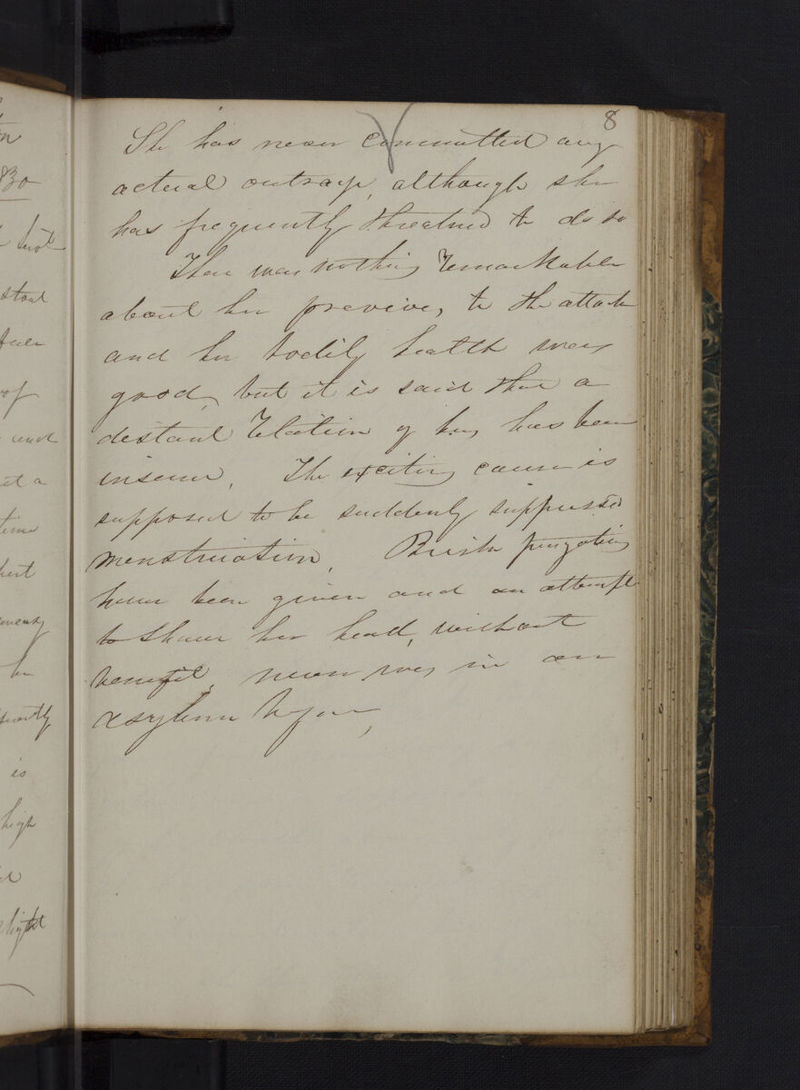 8
She has never committed any
actual outrage, although she
has frequently threatened to do so
There was nothing remarkable
about her previous, to the attack
and her bodily health was
good, but it is said that a
distant relation of hers has been
insane. The exciting cause is
supposed to be suddenly suppressed
menstruation. Brisk purgatives
have been given and an attempt
to shave her head, without
benefit, never was in an
asylum before,
n
830
not
of
and
at a
time
is
high
slight